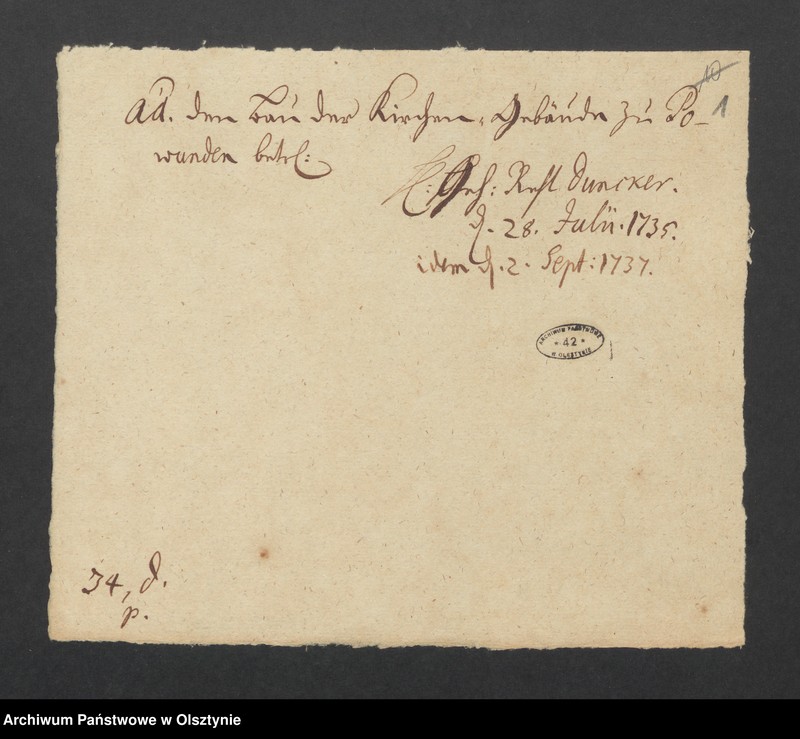 10
1
ad. den Bau der Kirchen-Gebäude zu Po-
wunden betr:
H: Geh: Duncker.
d. 28. Julii. 1735.
idem d. 2. Sept: 1737.
ARCHIWUM PAŃSTWOWE
* 42 *
W OLSZTYNIE
34, d.
p.
Archiwum Państwowe w Olsztynie